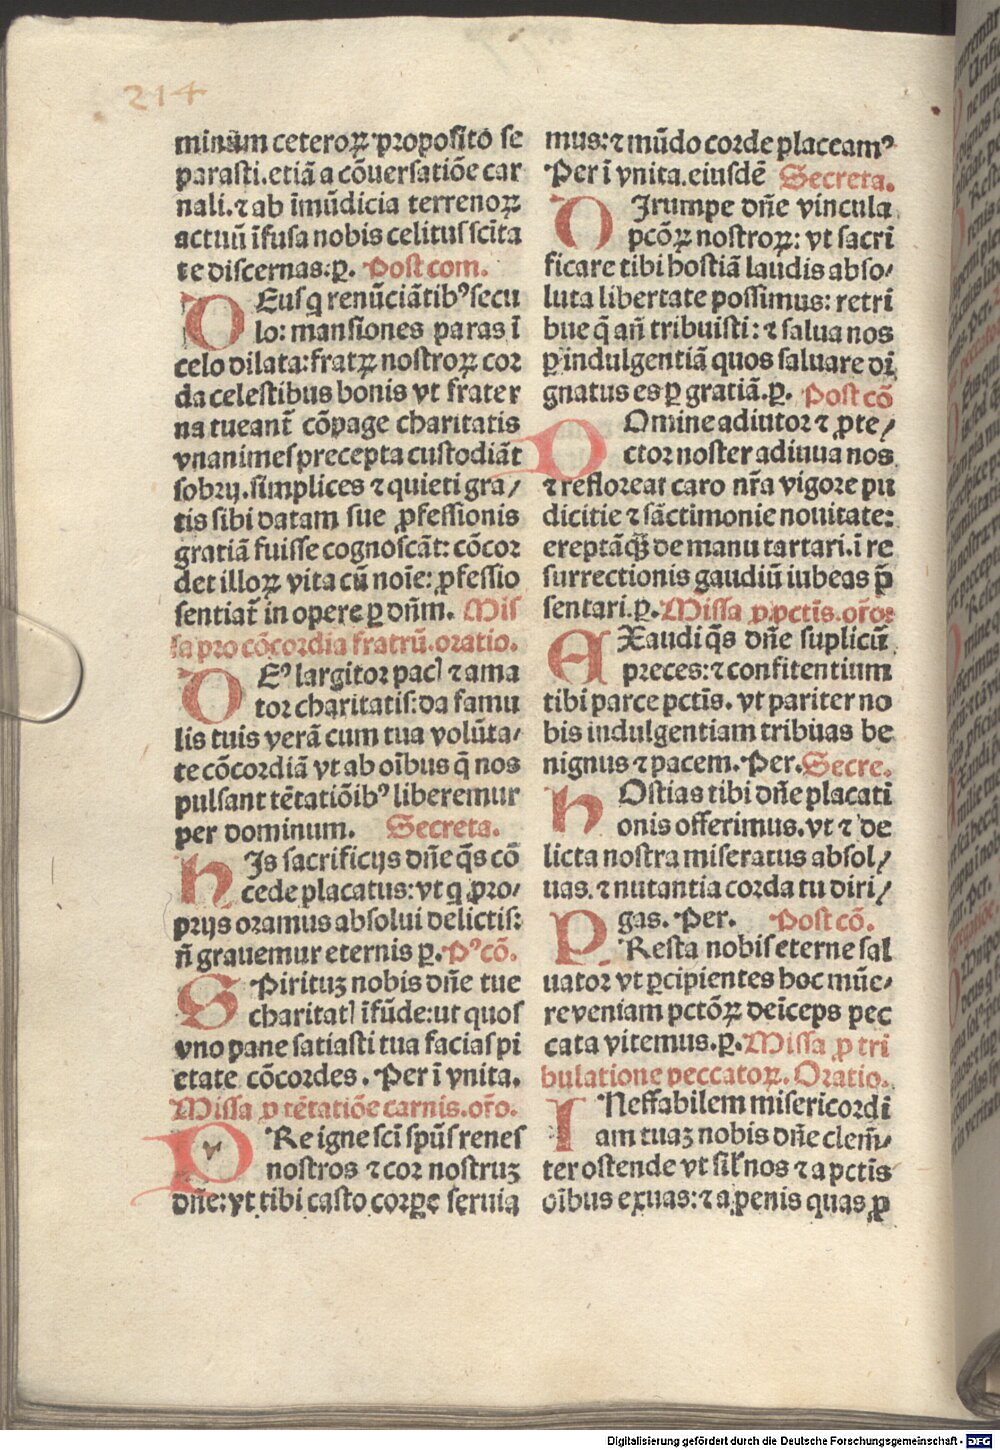 214
minũm ceteroꝝ proposito se
parasti.etiã a cõuersatiõe car
nali.⁊ ab ĩmũdicia terrenoꝝ
actuũ ĩfusa nobis celitus scĩta
te discernas:ꝑ. Post com.
DEus q renũciãtibꝰ secu
lo: mansiones paras ĩ
celo dilata:fratꝝ nostroꝝ cor
da celestibus bonis vt frater
na tueant̃ cõpage charitatis
vnanimes precepta custodiãt
sobrij.simplices ⁊ quieti gra/
tis sibi datam sue ꝓfessionis
gratiã fuisse cognoscãt: cõcor
det illoꝝ vita cũ noĩe: ꝓfessio
sentiat̃ in opere ꝑ dñm. Mis
sa pro cõcordia fratrũ.oratio.
DEꝰ largitor pacꝭ ⁊ ama
tor charitatis:da famu
lis tuis verã cum tua volũta/
te cõcordiã vt ab oĩbus q̃ nos
pulsant tẽtatiõibꝰ liberemur
per dominum. Secreta.
hIs sacrificijs dñe q̃s cõ
cede placatus: vt q ꝓpro/
prijs oramus absolui delictis:
ñ grauemur eternis ꝑ. Pꝰ cõ.
SPirituꝫ nobis dñe tue
charitatꝭ ĩfũde:ut quos
vno pane satiasti tua facias pi
etate cõcordes. Per ĩ vnita.
Missa ꝓ tẽtatiõe carnis.or̃o.
VRe igne scĩ spũs renes
nostros ⁊ cor nostruꝫ
dñe: vt tibi casto corꝑe seruia
mus: ⁊ mũdo corde placeamꝰ
Per ĩ vnita.eiusdẽ Secreta.
DIrumpe dñe vincula
pcõꝝ nostroꝝ: vt sacri
ficare tibi hostiã laudis abso/
luta libertate possimus: retri
bue q̃ añ tribuisti: ⁊ salua nos
ꝑ indulgentiã quos saluare di
gnatus es ꝑ gratiã.ꝑ. Post cõ
DOmine adiutor ⁊ ꝓte/
ctor noster adiuua nos
⁊ refloreat caro nr̃a vigore pu
dicitie ⁊ sãctimonie nouitate:
ereptãqꝫ de manu tartari.ĩ re
surrectionis gaudiũ iubeas p̃
sentari.ꝑ. Missa ꝓ pctĩs.or̃o:
EXaudi q̃s dñe suplicũ
preces: ⁊ confitentium
tibi parce pctĩs. vt pariter no
bis indulgentiam tribuas be
nignus ⁊ pacem. Per. Secre.
hOstias tibi dñe placati
onis offerimus.vt ⁊ de
licta nostra miseratus absol/
uas. ⁊ nutantia corda tu diri/
gas. Per. Post cõ.
PResta nobis eterne sal
uator vt ꝑcipientes hoc mũe/
re veniam pctõꝝ deĩceps pec
cata vitemus.ꝑ. Missa ꝓ tri
bulatione peccatoꝝ. Oratio.
INeffabilem misericordi
am tuaꝫ nobis dñe clem̃/
ter ostende vt sil̃ nos ⁊ a pctĩs
oĩbus exuas: ⁊ a penis quas ꝓ
Digitalisierung gefördert durch die Deutsche Forschungsgemeinschaft - DFG